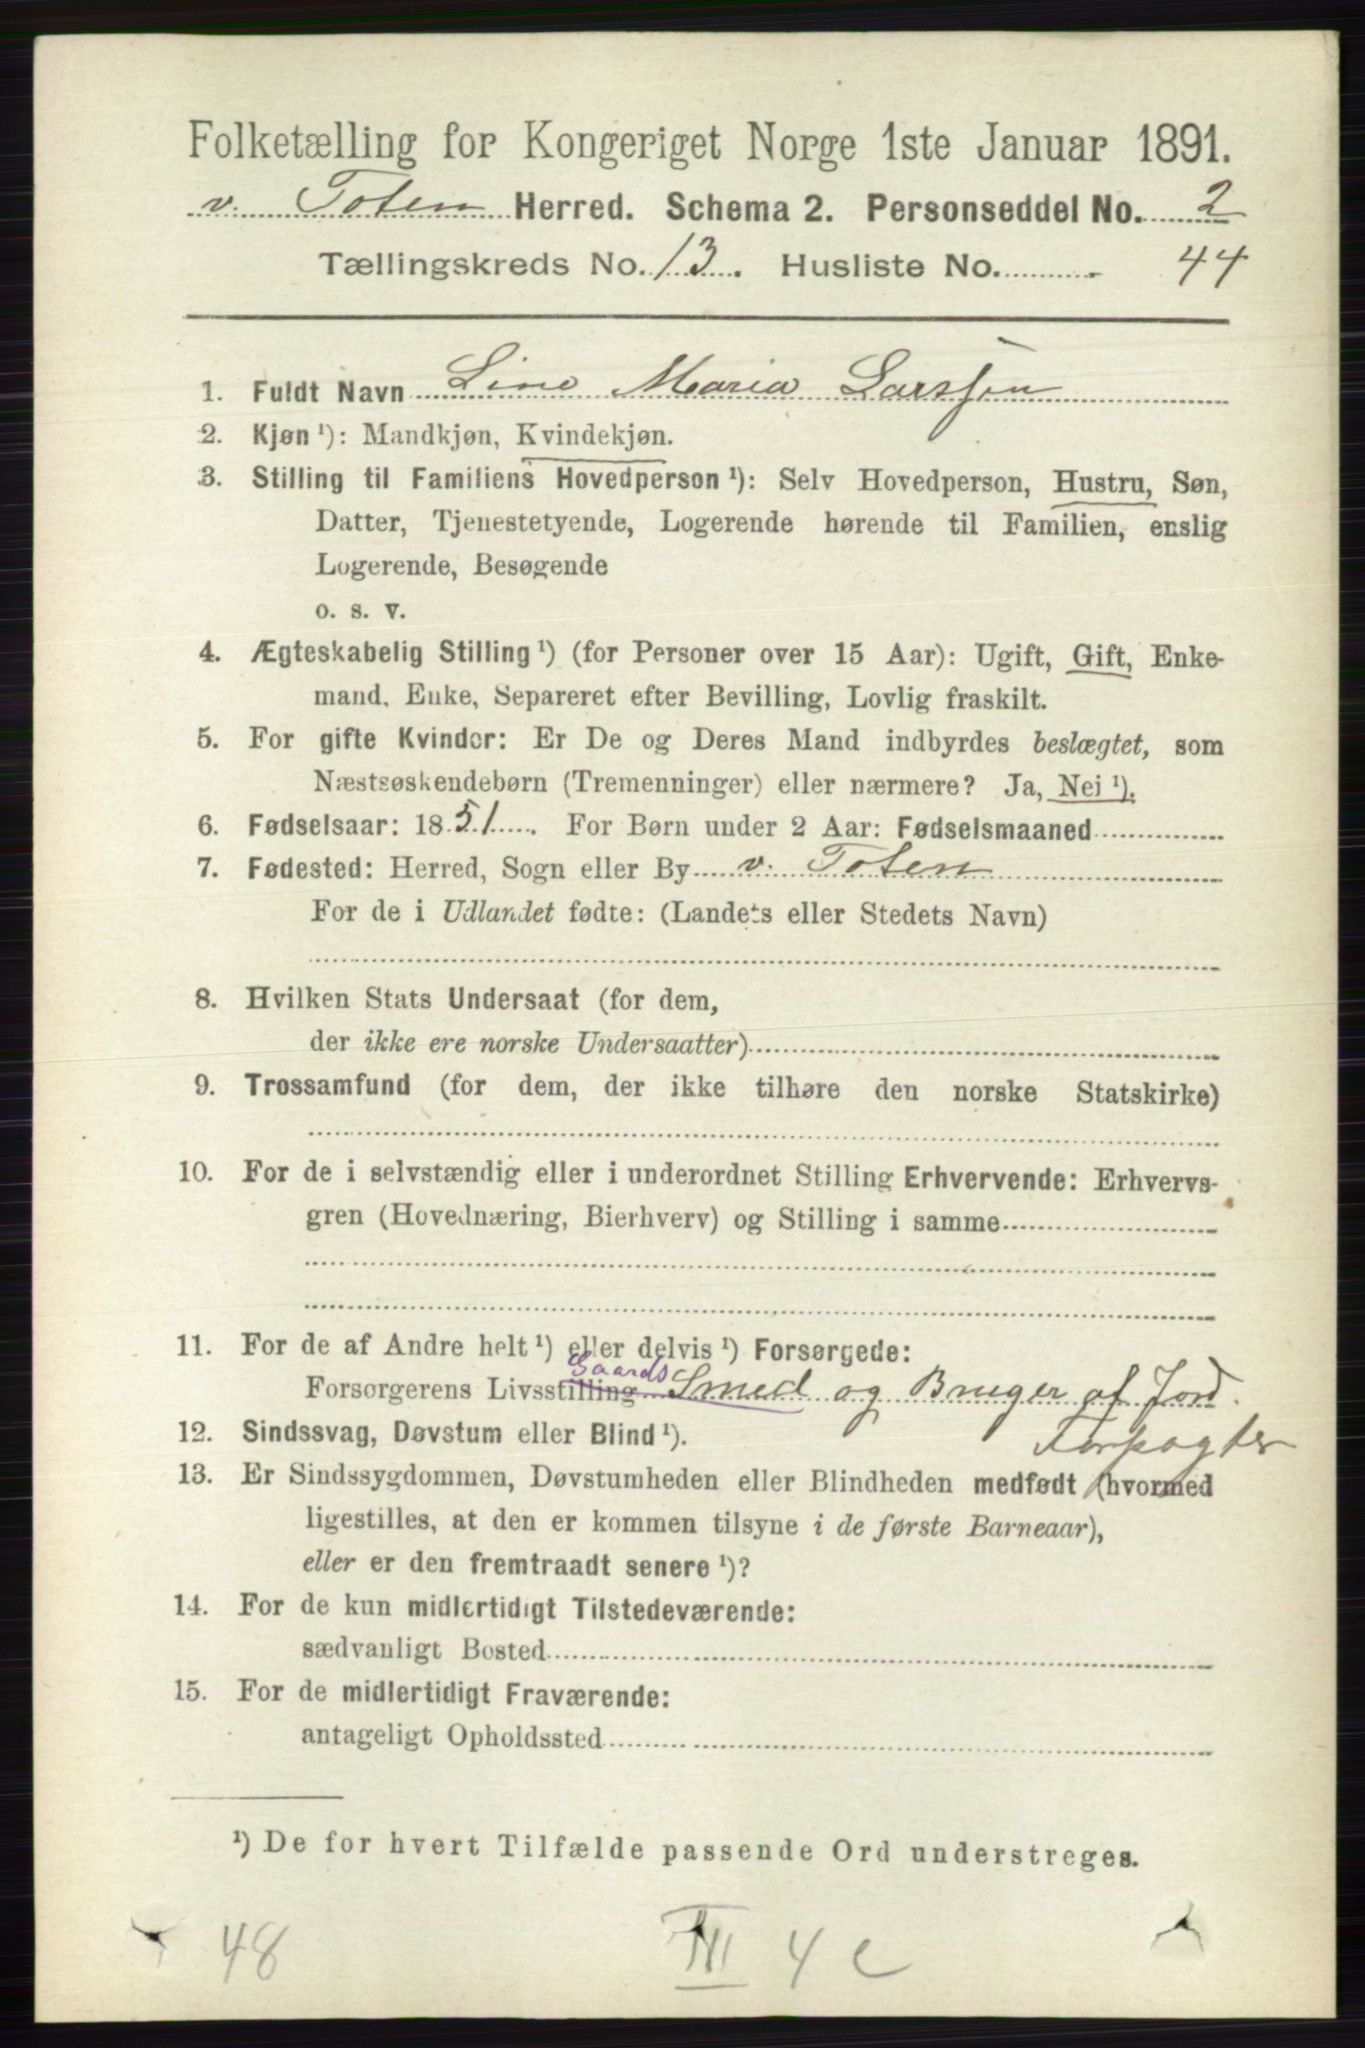 Folketælling for Kongeriget Norge 1ste Januar 1891.
v. Toten Herred. Schema 2. Personseddel No. 2
Tællingskreds No. 13. Husliste No. 44
1. Fuldt Navn Line Maria Larssen
2. Kjøn ¹): Mandkjøn, Kvindekjøn.
3. Stilling til Familiens Hovedperson ¹): Selv Hovedperson, Hustru, Søn,
Datter, Tjenestetyende, Logerende hørende til Familien, enslig
Logerende, Besøgende
o. s. v.
4. Ægteskabelig Stilling ¹) (for Personer over 15 Aar): Ugift, Gift, Enke-
mand, Enke, Separeret efter Bevilling, Lovlig fraskilt.
5. For gifte Kvinder: Er De og Deres Mand indbyrdes beslægtet, som
Næstsøskendebørn (Tremenninger) eller nærmere? Ja, Nei ¹).
6. Fødselsaar: 1851. For Børn under 2 Aar: Fødselsmaaned
7. Fødested: Herred, Sogn eller By v. Toten
For de i Udlandet fødte: (Landets eller Stedets Navn)
8. Hvilken Stats Undersaat (for dem,
der ikke ere norske Undersaatter)
9. Trossamfund (for dem, der ikke tilhøre den norske Statskirke)
10. For de i selvstændig eller i underordnet Stilling Erhvervende: Erhvervs-
gren (Hovednæring, Bierhverv) og Stilling i samme
11. For de af Andre helt ¹) eller delvis ¹) Forsørgede:
Gaards
Forsørgerens Livsstilling Smed og Bruger af Jord.
Forpagter
12. Sindssvag, Døvstum eller Blind ¹).
13. Er Sindssygdommen, Døvstumheden eller Blindheden medfødt (hvormed
ligestilles, at den er kommen tilsyne i de første Barneaar),
eller er den fremtraadt senere ¹)?
14. For de kun midlertidigt Tilstedeværende:
sædvanligt Bosted
15. For de midlertidigt Fraværende:
antageligt Opholdssted
¹) De for hvert Tilfælde passende Ord understreges.
48 III 4 c